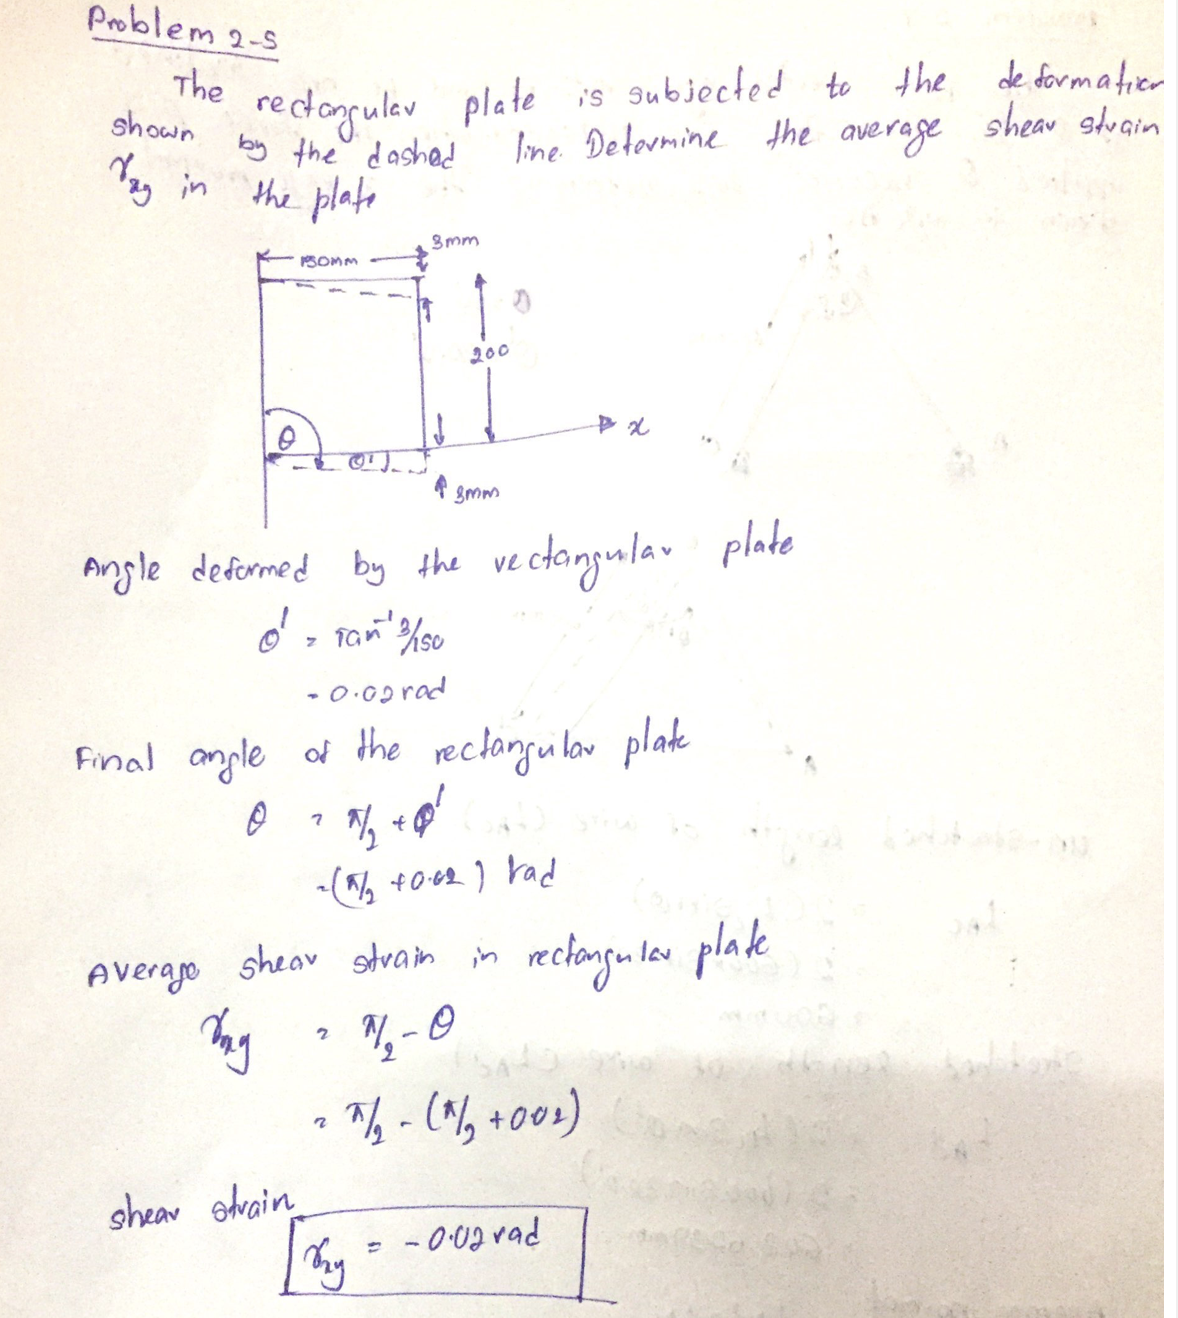 Problem 2-5
The rectangular plate is subjected to the deformation
shown by the dashed line. Determine the average shear strain
γxy in the plate
3mm
150mm
200
θ
θ'
x
3mm
Angle deformed by the rectangular plate
θ' = Tan⁻¹ 3/150
= 0.02 rad
Final angle of the rectangular plate
θ = π/2 + θ'
= (π/2 + 0.02) rad
Average shear strain in rectangular plate
γxy = π/2 - θ
= π/2 - (π/2 + 0.02)
shear strain
γxy = - 0.02 rad